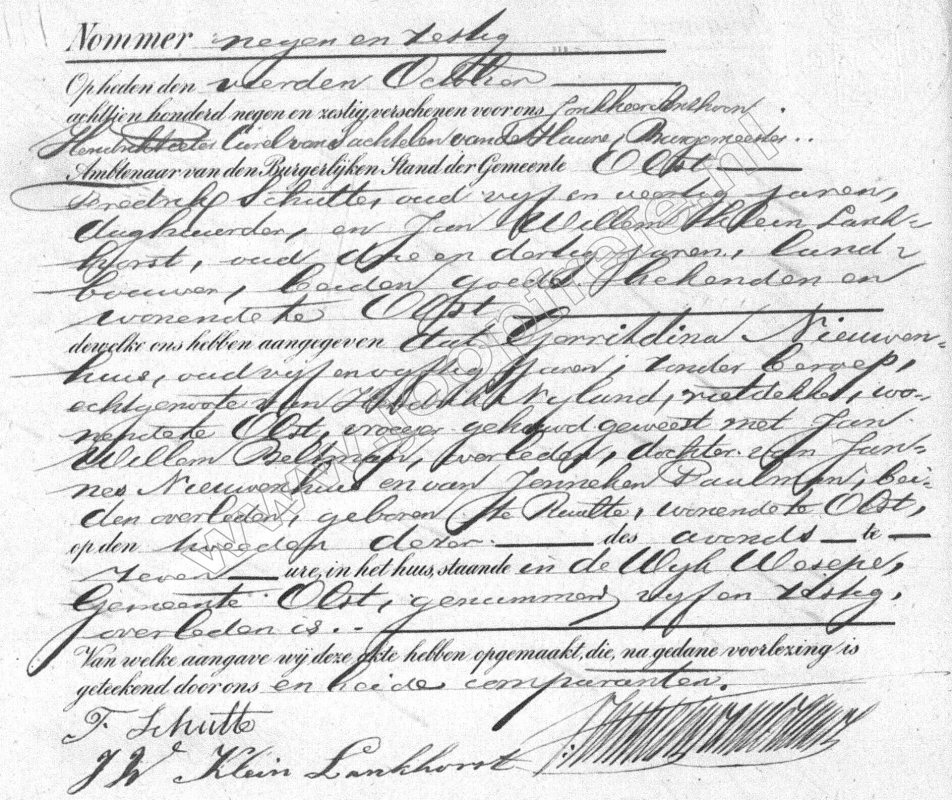 Nommer negen en zestig
Op heden den vierden October
achttien honderd negen en zestig, verschenen voor ons Jonkheer Anthoon
Hendrik Pieter Carel van Suchtelen van de Haare, Burgemeester
Ambtenaar van den Burgerlijken Stand der Gemeente Olst
Fredrik Schutte, oud vijf en veertig jaren,
daghuurder, en Jan Willem Klein Lank-
horst, oud drie en dertig jaren, land-
bouwer, beiden goede bekenden en
wonende te Olst
dewelke ons hebben aangegeven dat Gerritdina Nieuwen-
huis, oud vijf en vyftig jaren, zonder beroep,
echtgenoote van Hendrik Nyland, rietdekker, wo-
nende te Olst, vroeger gehuwd geweest met Jan
Willem Beltman, overleden, dochter van Jan-
nes Nieuwenhuis en van Jenneken Paalman, bei-
den overleden, geboren te Raalte, wonende te Olst,
op den tweeden dezer des avonds te
zeven ure, in het huis, staande in de Wyk Wesepe,
Gemeente Olst, genummerd vyf en zestig,
overleden is.
Van welke aangave wij deze akte hebben opgemaakt, die, na gedane voorlezing is
geteekend door ons en beide comparanten.
F. Schutte
J W Klein Lankhorst